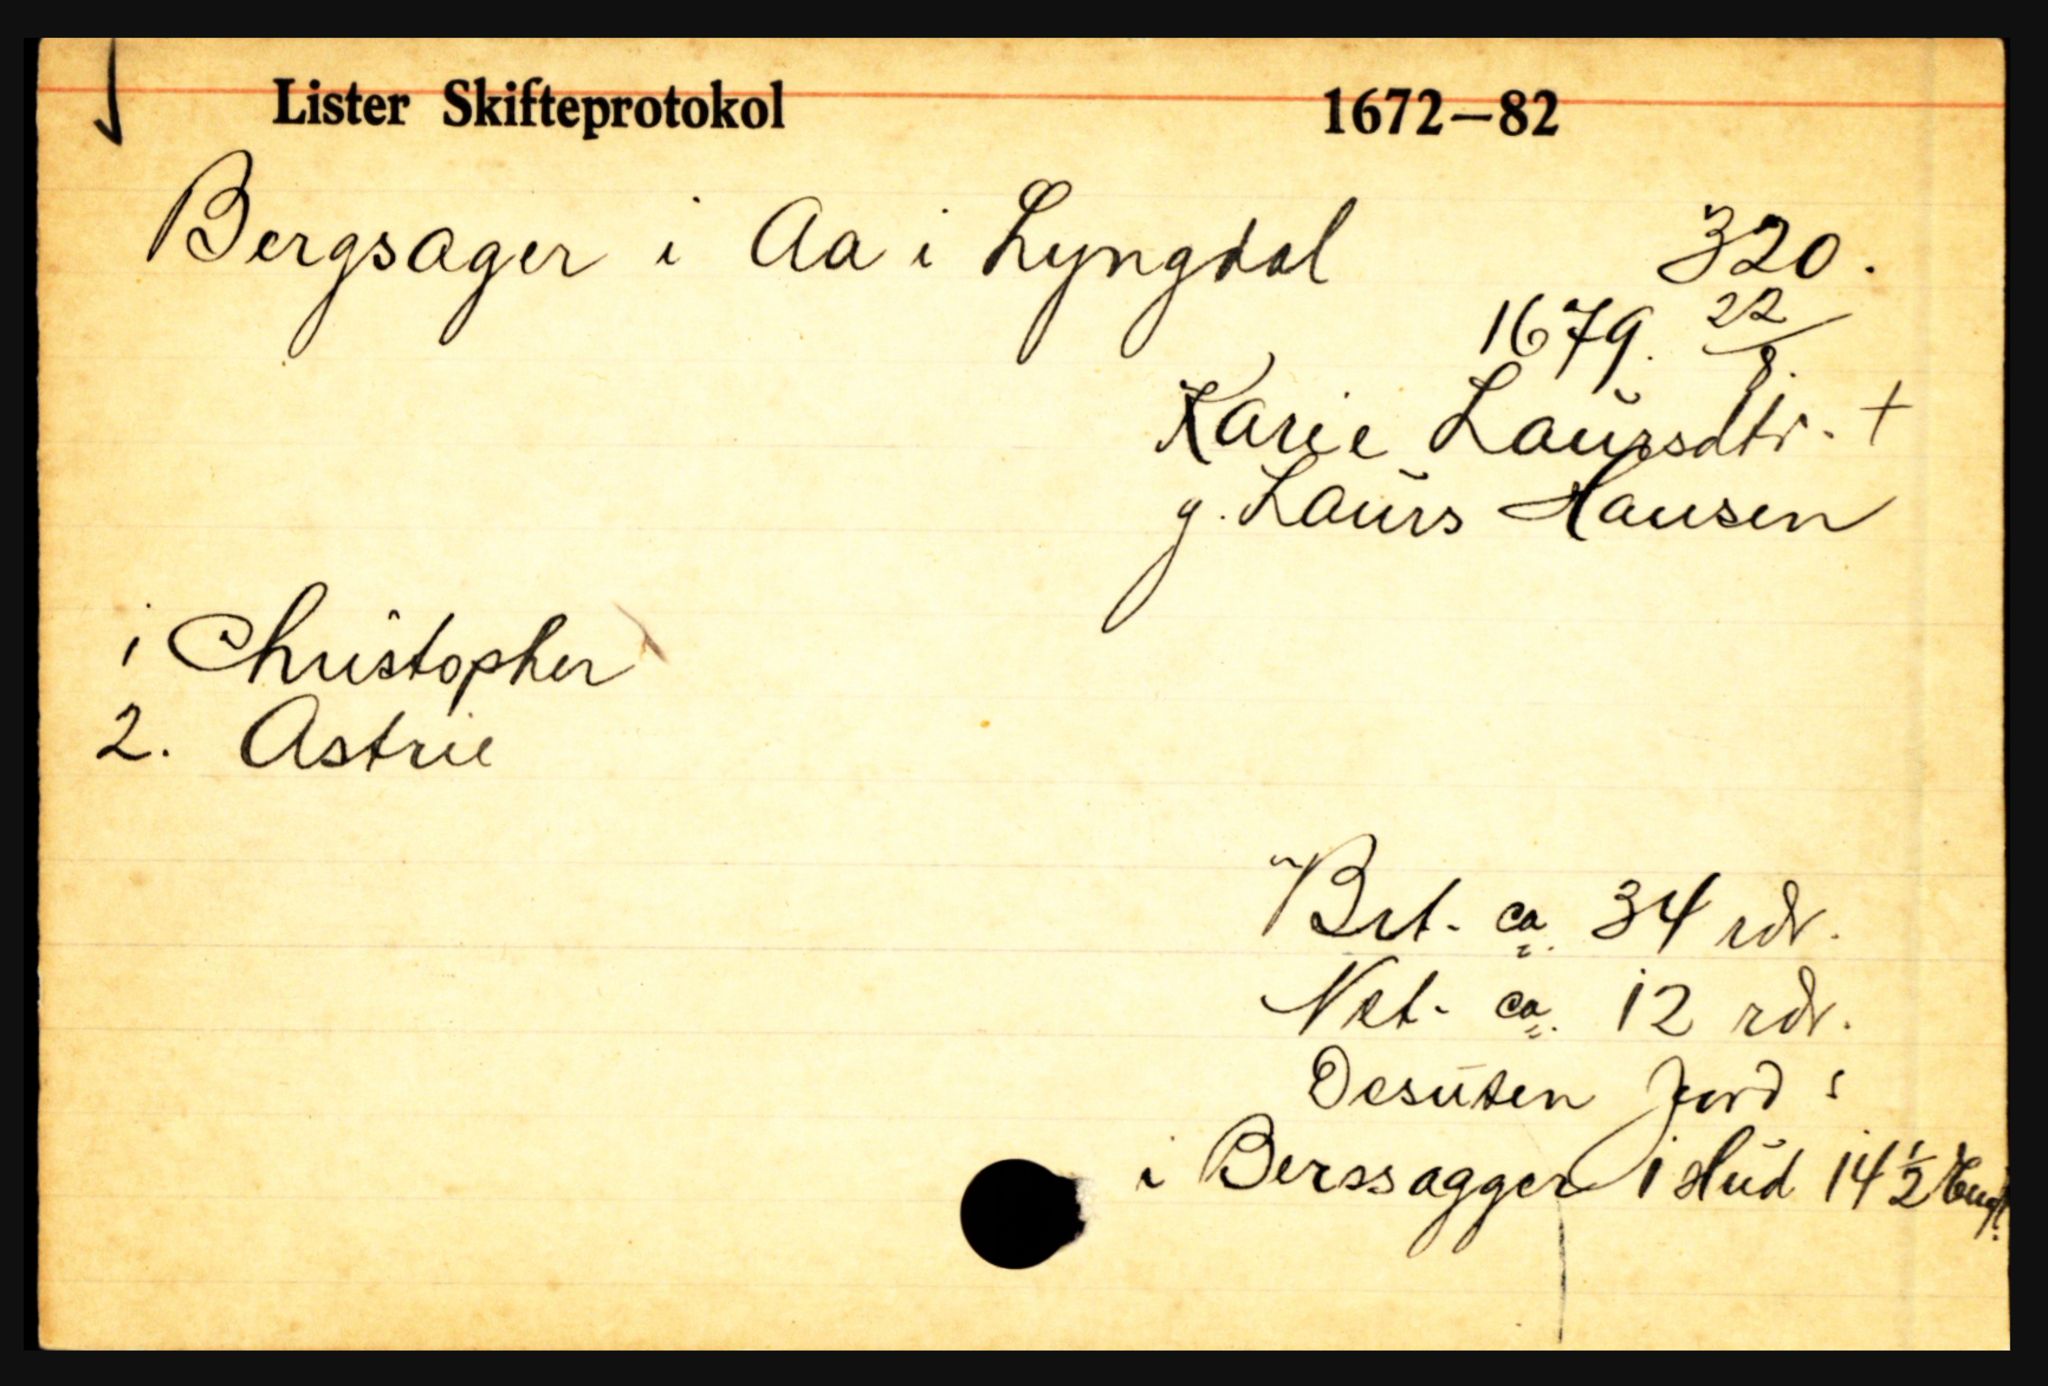 Lister Skifteprotokol 1672–82
Bergsager i Aa i Lyngdal 320.
1679. 22/8.
Karie Laursdtr. +
g. Laurs Hansen
1 Christopher
2. Astrie
Brt. ca. 34 rdr.
Net. ca. 12 rdr.
Desuten Jord:
i Berssagger 1 Hud 14 1/2 Eng.